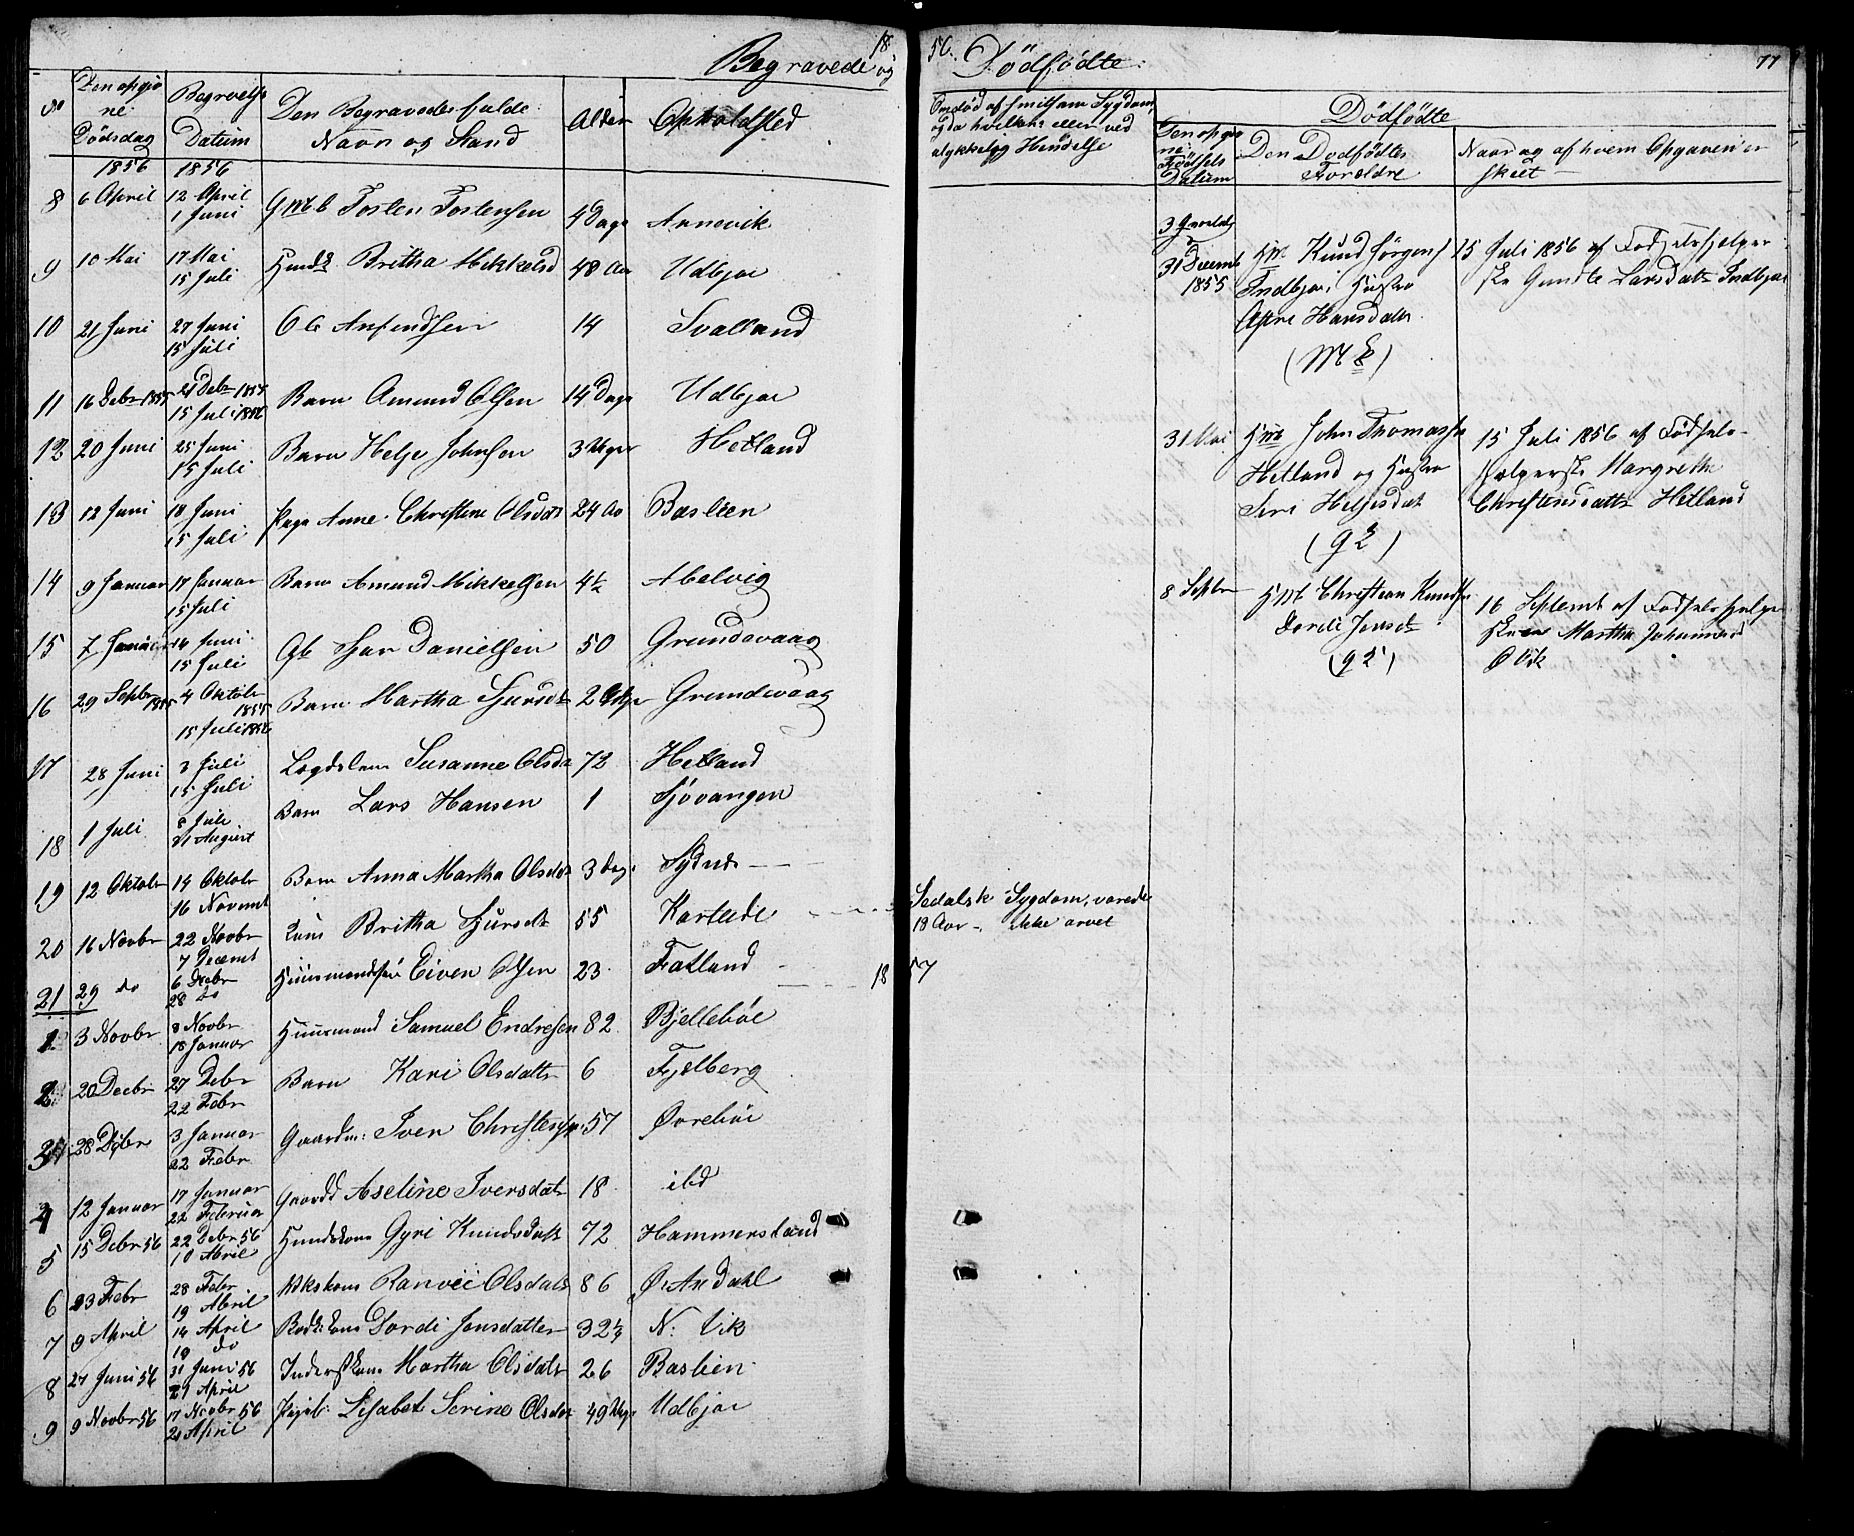 Begravede og 18
№ Den opgivne Dødsdag Begravelses Datum Den Begravedes fulde Navn og Stand Alder Opholdsted
1856 1856
8 6 April 12 April 1 Juni Gmb Tosten Tostensen 4 Dage Annevik
9 10 Mai 17 Mai 15 Juli Britha Mikkelsd 48 Aar Udbjoe
10 21 Juni 27 Juni 15 Juli Ole Anfindsen 14 Svalland
11 16 Debr 1855 21 Debr 1855 15 Juli 1856 Barn Amund Olsen 14 Dage Udbjoe
12 20 Juni 25 Juni 15 Juli Barn Helje Johnsen 3 Uger Hetland
13 12 Juni 18 Juni 15 Juli Pige Anne Christine Olsdat 24 Aar Baslien
14 9 Januar 17 Januar 15 Juli Barn Amund Mikkelsen 4½ Abelvig
15 7 Juni 14 Juni 15 Juli Gb Sjur Danielsen 50 Grundevaag
16 29 Septbr 1855 4 Oktobr 1855 15 Juli 1856 Barn Martha Sjursdt 2 Uger Grundevaag
17 28 Juni 3 Juli 15 Juli Lægdslem Susanne Olsdt 72 Hetland
18 1 Juli 8 Juli 21 August Barn Lars Hansen 1 Sjøvangen
19 12 Oktobr 14 Oktobr 16 Novemt Barn Anna Martha Olsdat 3 Dage Sydnes
20 16 Novbr 22 Novbr 7 Decemt Britha Sjursdt 55 Kartveit
21 29 do 6 Decbr 28 do Huusmandssøn Eiven Olsen 23 Fatland
18
1 3 Novbr 8 Novbr 18 Januar Huusmand Samuel Endresen 82 Bjellebøe
2 20 Decbr 27 Debr 22 Febr Barn Kari Olsdattr 6 Fjelberg
3 28 Debr 3 Januar 22 Febr Gaardm: Iven Christensen 57 Øvrebøe
4 12 Januar 17 Januar 22 Februar Gaardd Aseline Iversdatr 18 ibd
5 15 Debr 56 22 Debr 56 10 Abril Gyri Knudsdatr 72 Hammersland
6 23 Febr 28 Febr 19 Abril Ranvei Olsdatr 86 Ø. An Dahl
7 9 April 14 April 19 do Dordi Jonsdatter 32½ N: Vik
8 27 Juni 56 31 Juni 56 21 April Martha Olsdatr 26 Baslien
9 9 Novbr 56 17 Novbr 56 21 April Pigeb: Lisabet Serine Olsdat 49 Uger Udbjoe
56. Dödfödte: 77
Om død af smitsom Sygdom, og da hvilken eller ved ulykkelig Hendelse
Dödfödte
Den opgivne Fødsels Datum
Den Dødfødtes Forældre
Naar og af hvem Opgaven er skeet
3 31 Decemb 1855
Hm Knud Jørgens
Indbjoe Hustro
Hansdatr
15 Juli 1856 af Fødselshjelper
ske Gunille Larsdatr Indbjoe
31 Mai
Hm John Thomassn
Hetland og Hustro
Siri Heljesdat
15 Juli 1856 af Fødsels-
hjelperske Margrethe
Christensdattr Hetland
8 Septbr
Hm Christian Knudsn
Dordi Jensdt
16 Septemt af Fødselshjelpe
Martha Johannesd
Ø Vik
Sedalsk Sygdom, varede
18 Aar - ikke arvet
57